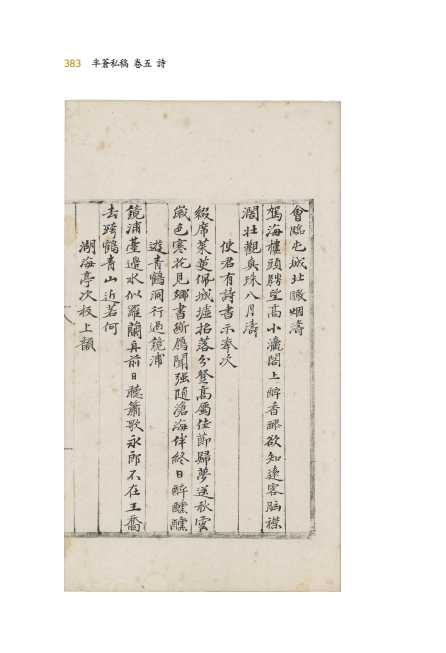 383 半蒼私稿 卷五 詩
會臨屯城北暎烟濤
駕海樓頭騁望高小瀛閣上醉香醪欲知遠客胸襟
濶壯觀眞珠八月濤
使君有詩書示奉次
綴席茱萸佩城墟招落分鴌高屬佳節歸夢送秋雲
歲色寒花見鄉書斷鴈聞强隨滄海伴終日醉醺醺
遊青鶴洞行過鏡浦
鏡浦臺邊水似羅蘭舟前日聽簫歌永郎不在王喬
去跨鶴青山近若何
湖海亭次板上韻